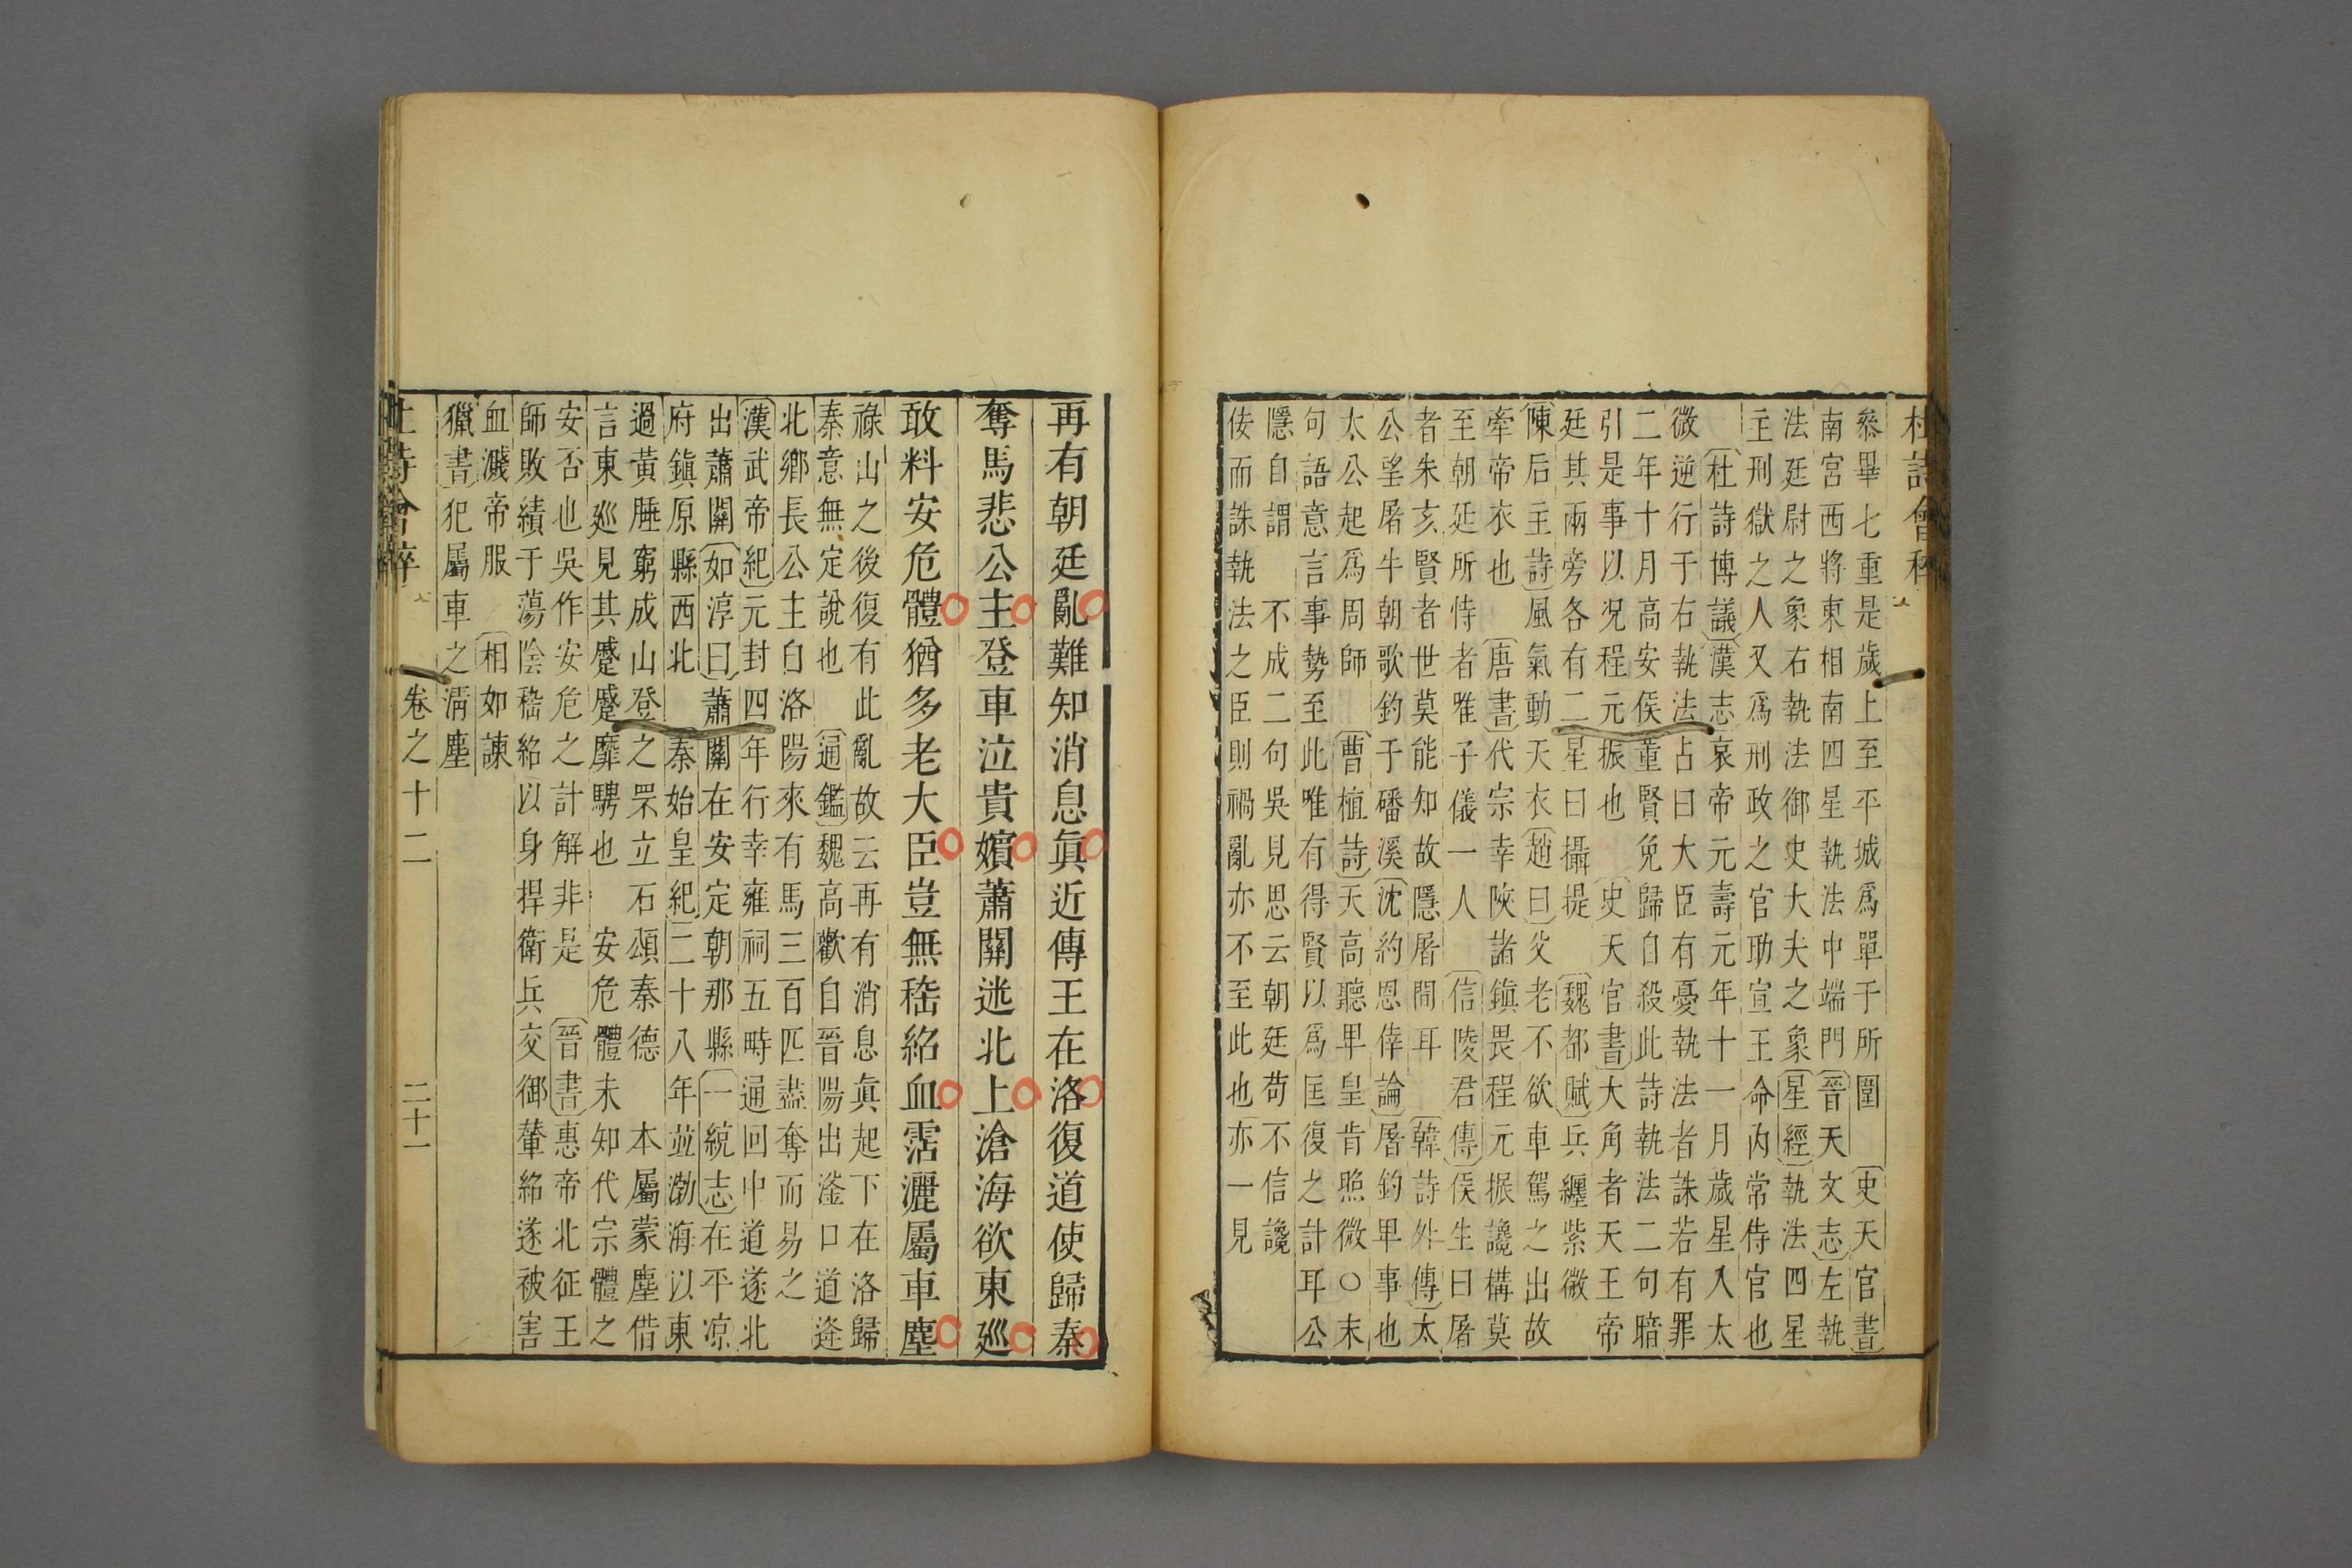 杜詩會稡
叅畢七重是歲上至平城爲單于所圍 史天官書
南宮西將東相南四星執法中端門 晉天文志 左執
法廷尉之象右執法御史大夫之象 星經 執法四星
主刑獄之人又爲刑政之官助宣王命內常侍官也
杜詩博議 漢志哀帝元壽元年十一月歲星入太
微逆行于右執法占曰大臣有憂執法者誅若有罪
二年十月高安侯董賢免歸自殺此詩執法二句暗
引是事以况程元振也 史天官書 大角者天王帝
廷其兩旁各有二星曰攝提 魏都賦 兵纏紫微
陳后主詩 風氣動天衣 趙曰 父老不欲車駕之出故
牽帝衣也 唐書 代宗幸陜諸鎮畏程元振讒構莫
至朝廷所恃者唯子儀一人 信陵君傳 侯生曰屠
者朱亥賢者世莫能知故隱屠間耳 韓詩外傳 太
公望屠牛朝歌釣于磻溪 沈約恩倖論 屠釣畢事也
太公起爲周師 曹植詩 天高聽卑皇肯照微○末
句語意言事勢至此唯有得賢以爲匡復之計耳公
隱自謂 不成二句吳見思云朝廷苟不信讒
佞而誅執法之臣則禍亂亦不至此也亦一見
再有朝廷亂難知消息眞近傳王在洛復道使歸秦
奪馬悲公主登車泣貴嬪蕭關迷北上滄海欲東廵
敢料安危體猶多老大臣豈無嵇紹血霑灑屬車塵
祿山之後復有此亂故云再有消息眞起下在洛歸
秦意無定說也 通鑑 魏高歡自晉陽出滏口道逢
北鄉長公主自洛陽來有馬三百匹盡奪而易之
漢武帝紀 元封四年行幸雍祠五畤通回中道遂北
出蕭關 如淳曰 蕭關在安定朝那縣 一統志 在平凉
府鎮原縣西北 秦始皇紀 二十八年並渤海以東
過黃腄窮成山登之罘立石頌秦德 本屬蒙塵借
言東廵見其蹙蹙靡騁也 安危體未知代宗體之
安否也吳作安危之計解非是 晉書 惠帝北征王
師敗績于蕩陰嵇紹以身捍衛兵交御輦紹遂被害
血濺帝服 相如諫
獵書 犯屬車之淸塵
杜詩會稡 卷之十二 二十一